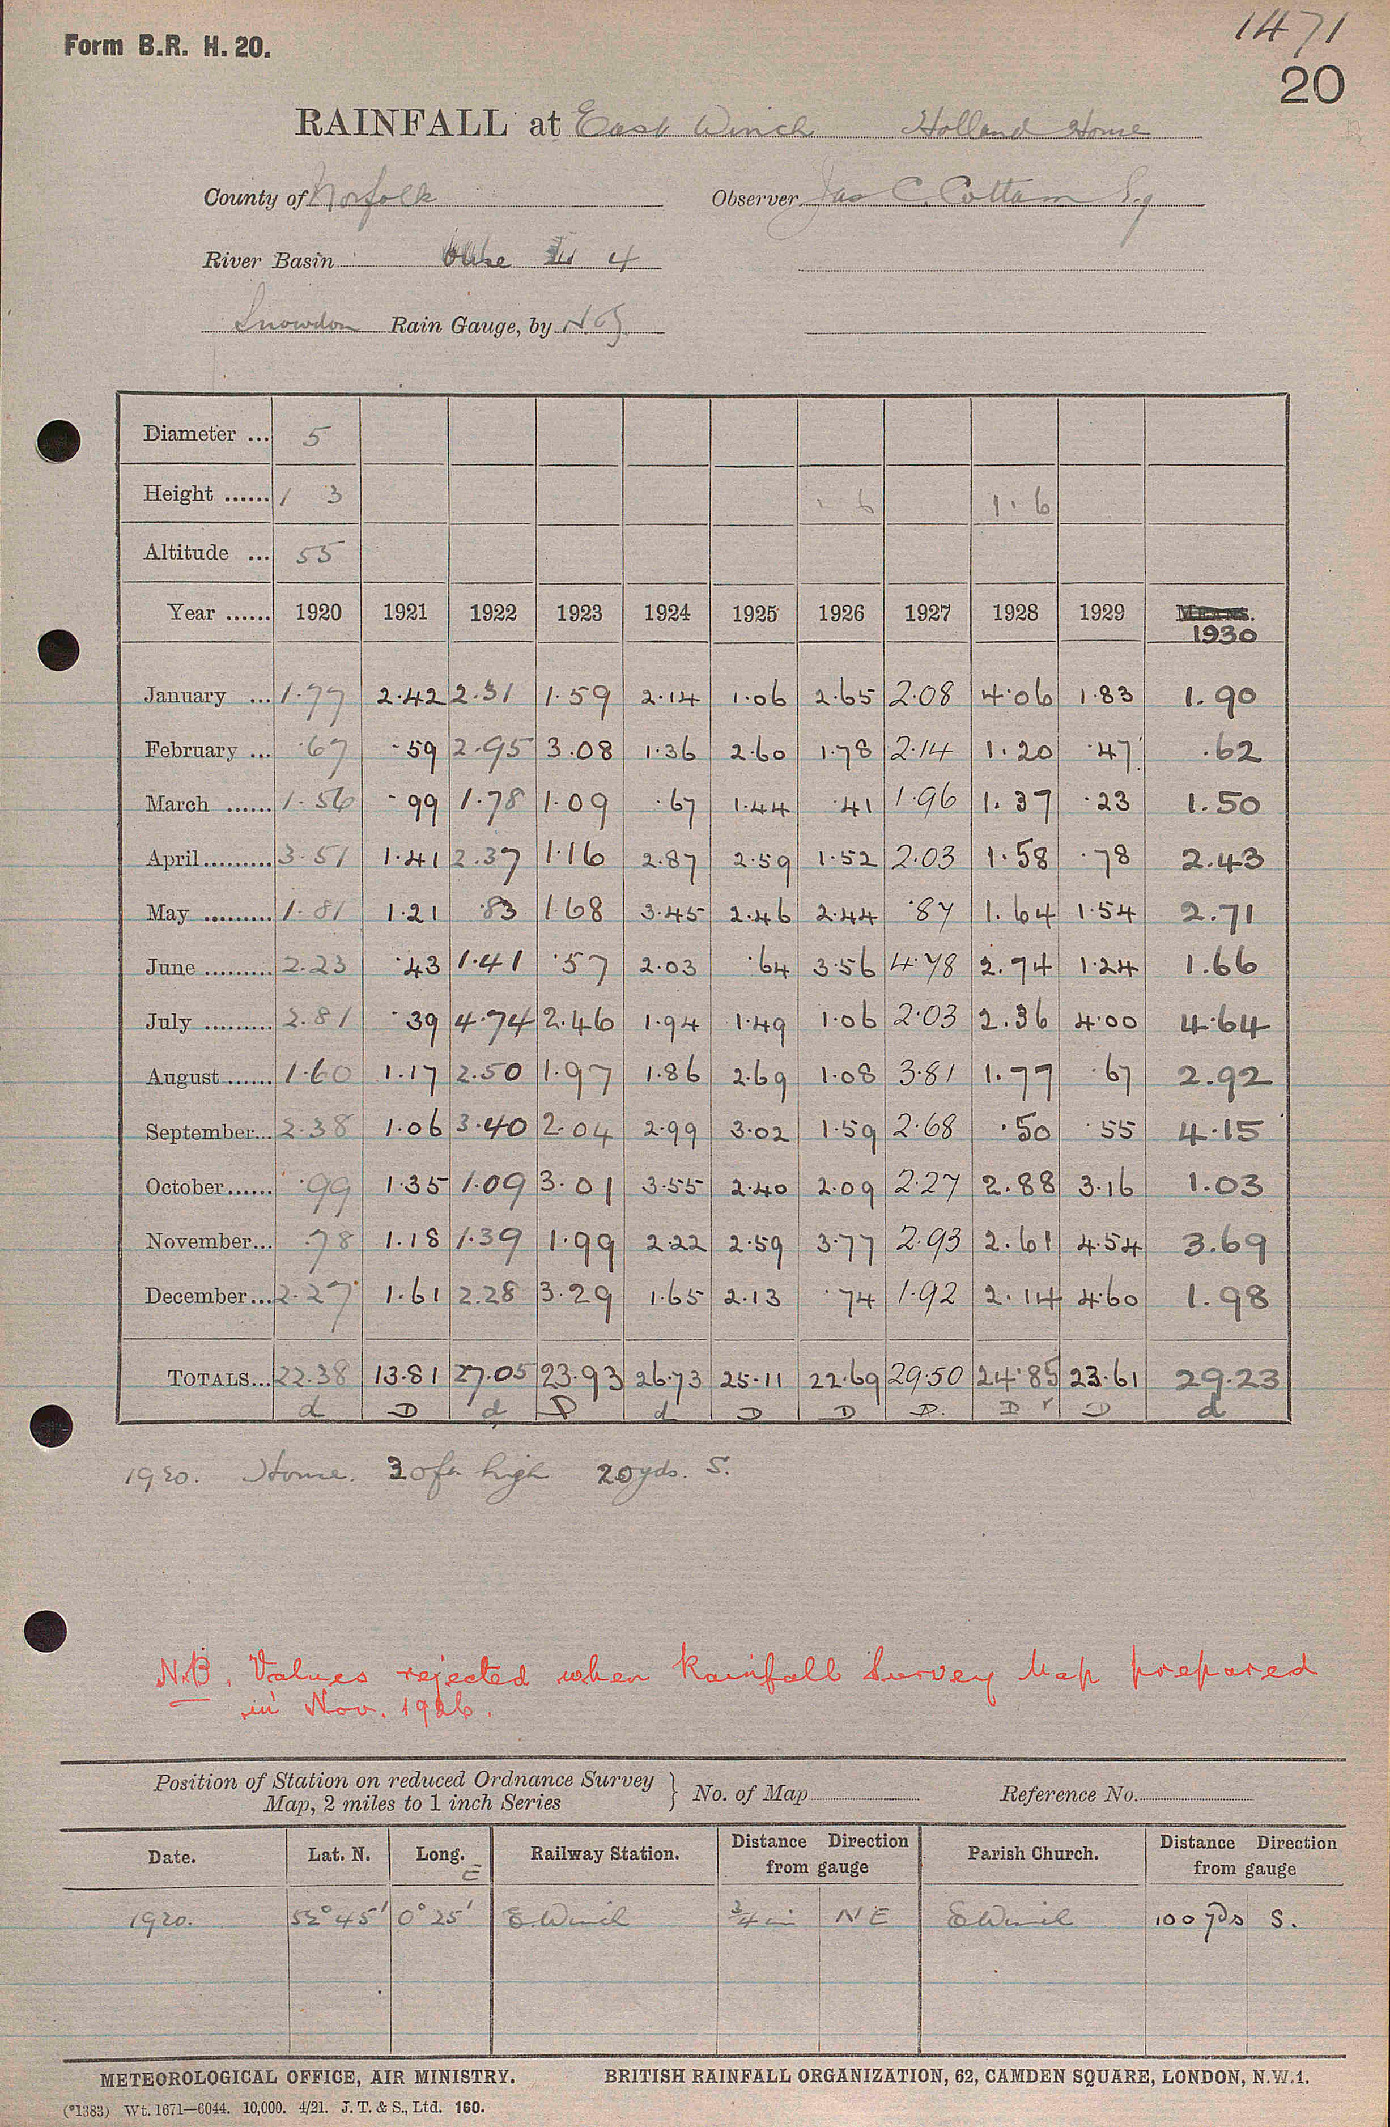 1471
Form B.R. H. 20.
20
RAINFALL at East Winch Holland House
County of Norfolk Observer Jas C. Cottam Esq
River Basin Ouse 4
Snowdon Rain Gauge, by
Diameter ... 5
Height ...... 1 3 1. 6 1. 6
Altitude ... 55
Year ...... 1920 1921 1922 1923 1924 1925 1926 1927 1928 1929 MEANS.
1930
January ... 1.77 2.42 2.31 1.59 2.14 1.06 2.65 2.08 4.06 1.83 1.90
February ... .67 .59 2.95 3.08 1.36 2.60 1.78 2.14 1.20 .47 .62
March ...... 1.56 .99 1.78 1.09 .67 1.44 .41 1.96 1.37 .23 1.50
April......... 3.51 1.41 2.37 1.16 2.87 2.59 1.52 2.03 1.58 .78 2.43
May ......... 1.81 1.21 .83 1.68 3.45 2.46 2.44 .87 1.64 1.54 2.71
June ......... 2.23 .43 1.41 .57 2.03 .64 3.56 4.78 2.74 1.24 1.66
July ......... 2.81 .39 4.74 2.46 1.94 1.49 1.06 2.03 2.36 4.00 4.64
August ...... 1.60 1.17 2.50 1.97 1.86 2.69 1.08 3.81 1.77 .67 2.92
September... 2.38 1.06 3.40 2.04 2.99 3.02 1.59 2.68 .50 .55 4.15
October...... .99 1.35 1.09 3.01 3.55 2.40 2.09 2.27 2.88 3.16 1.03
November... .78 1.18 1.39 1.99 2.22 2.59 3.77 2.93 2.61 4.54 3.69
December... 2.27 1.61 2.28 3.29 1.65 2.13 .74 1.92 2.14 4.60 1.98
TOTALS... 22.38 13.81 27.05 23.93 26.73 25.11 22.69 29.50 24.85 23.61 29.23
d D d D d D D D. D r D d
1920. House. 30ft high 20yds. S.
N.B. Values rejected when Rainfall Survey Map prepared
in Nov. 1926.
Position of Station on reduced Ordnance Survey
Map, 2 miles to 1 inch Series } No. of Map Reference No.
Date. Lat. N. Long. E Railway Station. Distance Direction from gauge Parish Church. Distance Direction from gauge
1920. 52° 45' 0° 25' E. Winch 3/4 m NE E Winch 100 yds S.
METEOROLOGICAL OFFICE, AIR MINISTRY. BRITISH RAINFALL ORGANIZATION, 62, CAMDEN SQUARE, LONDON, N.W.1.
(*1383) Wt. 1671—6044. 10,000. 4/21. J. T. & S., Ltd. 160.